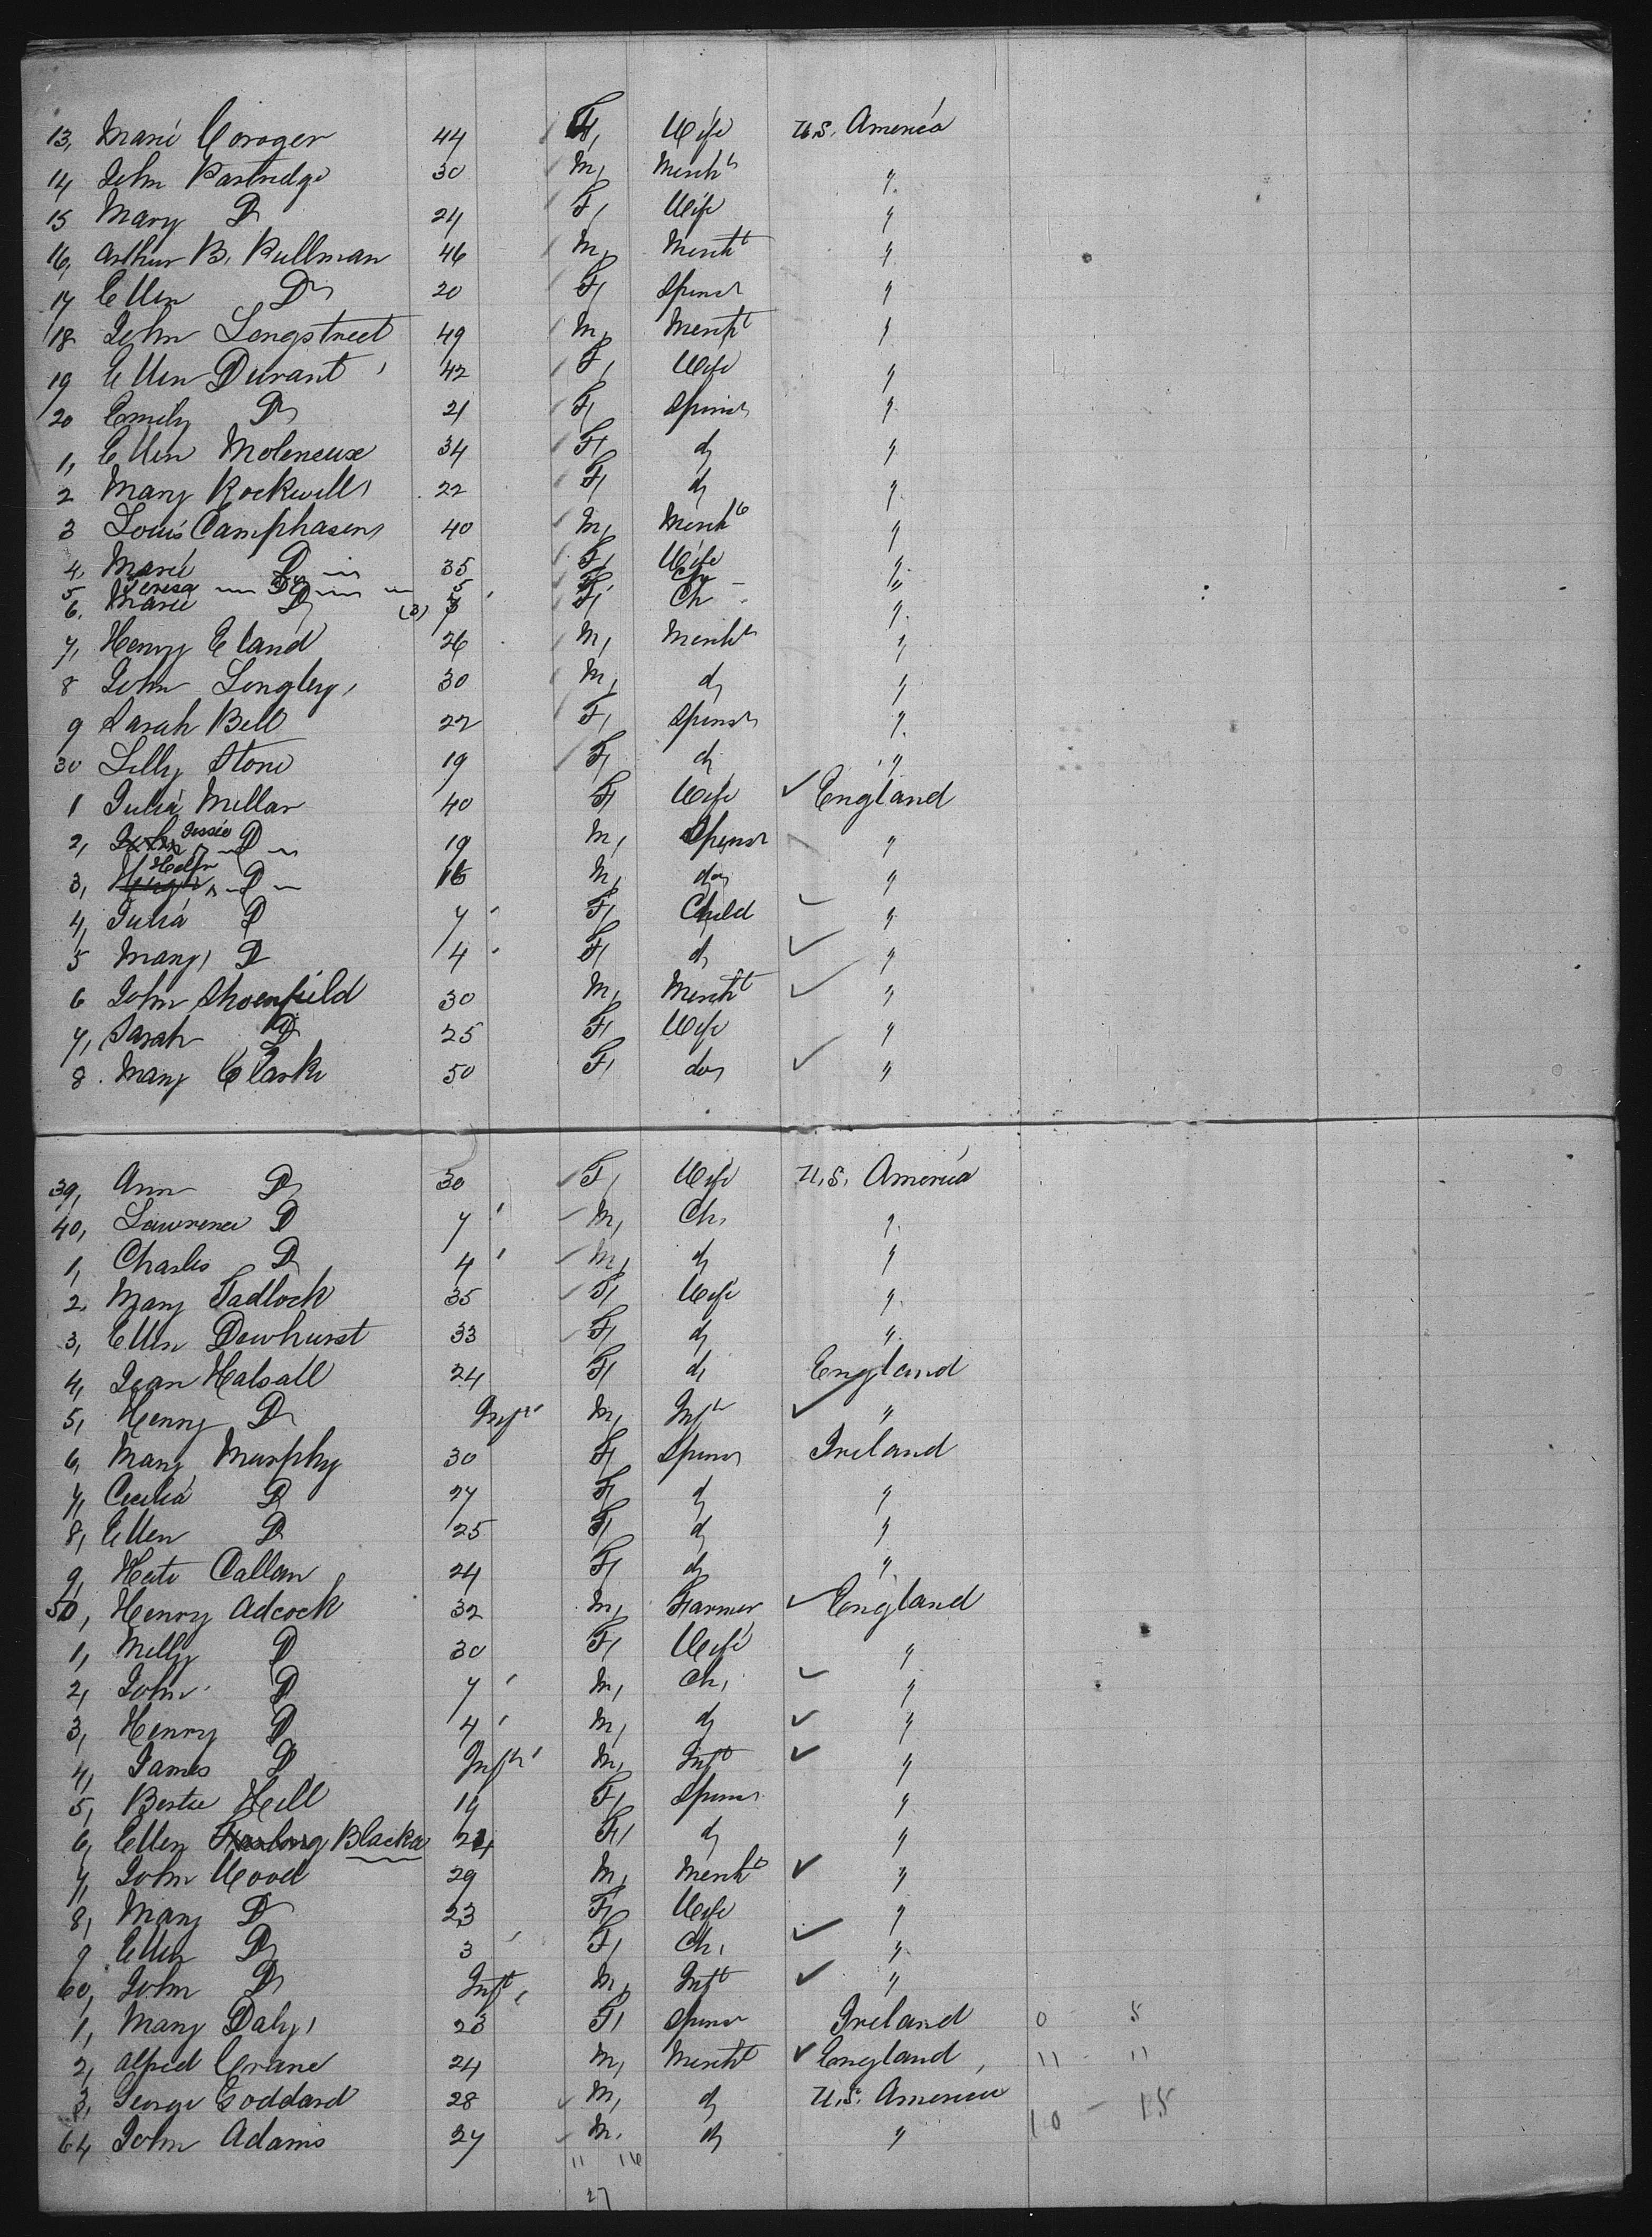 13, Marie Coroger 44 F, Wife U.S. America
14 John Partridge 30 M, Mercht "
15 Mary Do 24 F, Wife "
16, Arthur B. Pullman 46 M, Mercht "
17 Ellen Do 20 F, Spinsr "
18 John Longstreet 49 M, Mercht "
19 Ellen Durant 42 F, Wife "
20 Emily Do 21 F, Spinsr "
1, Ellen Moleneux 34 F, do "
2 Mary Rockwell 22 F, do "
3 Louis Camphasen 40 M, Mercht "
4, Marie Do 35 F, Wife "
5 Teresa Do 5 F, Ch "
6. Marie Do (3) F, Ch "
7, Henry Eland 26 M, Mercht "
8 John Longley, 30 M, do "
9 Sarah Bell 22 F, Spinsr "
30 Lilly Stone 19 F, do "
1 Julia Millar 40 F, Wife England
2, Jessie Do 19 M, Spinsr "
3, Do 16 M, do "
4, Julia Do 7 F, Child "
5 Mary Do 4 F, do "
6 John Shoenfield 30 M, Mercht "
7, Sarah Do 25 F, Wife "
8. Mary Clarke 50 F, do "
39, Ann Do 30 F, Wife U.S. America
40, Lawrence Do 7 M, Ch, "
1, Charles Do 4 M, do "
2, Mary Tadlock 35 F, Wife "
3, Ellen Dewhurst 33 F, do "
4, Jean Halsall 24 F, do England
5, Henry Do Inft M, Inft "
6, Mary Murphy 30 F, Spinsr Ireland
7, Cecilia Do 27 F, do "
8, Ellen Do 25 F, do "
9, Kate Callan 24 F, do "
50, Henry Adcock 32 M, Farmer England
1, Milly Do 30 F, Wife "
2, John Do 7 M, Ch, "
3, Henry Do 4 M, do "
4, James Do Inft M, Inft "
5, Bertie Hill 19 F, Spinsr "
6, Ellen Blacka 24 F, do "
7, John Wood 29 M, Mercht "
8, Mary Do 23 F, Wife "
9 Ellen Do 3 F, Ch, "
60, John Do Inft, M, Inft "
1, Mary Daly, 23 F, Spinsr Ireland 0 5
2, Alfred Crane 24 M, Mercht England, 11 - 11
3, George Goddard 28 M, do U.S. America
10 - 15
64 John Adams 27 M. do "
11 16
27